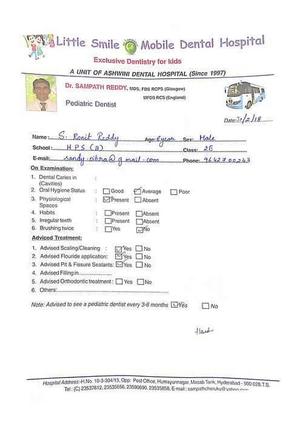 Little Smile Mobile Dental Hospital
Exclusive Dentistry for kids
A UNIT OF ASHWINI DENTAL HOSPITAL (Since 1997)
Dr. SAMPATH REDDY, MDS, FDS RCPS (Glasgow),
MFDS RCS (England)
Pediatric Dentist
Date: 7/2/18
Name: S. Ronit Reddy Age: 6year Sex: Male
School: HPS (B) Class:
E-mail: @gmail.com Phone:
On Examination:
1. Dental Caries in :
(Cavities)
2. Oral Hygiene Status : Good Average Poor
3. Physiological : Present Absent
Spaces
4. Habits : Present Absent
5. Irregular teeth : Present Absent
6. Brushing twice : Yes No
Adviced Treatment:
1. Advised Scaling/Cleaning : Yes No
2. Advised Flouride application: Yes No
3. Advised Pit & Fissure Sealants: Yes No
4. Advised Filling in
5. Advised Orthodontic treatment : Yes No
6. Others:
Note: Advised to see a pediatric dentist every 3-6 months Yes No
Hospital Address: H.No. 10-3-304/13, Opp: Post Office, Humayunnagar, Masab Tank, Hyderabad - 500 028.T.S.